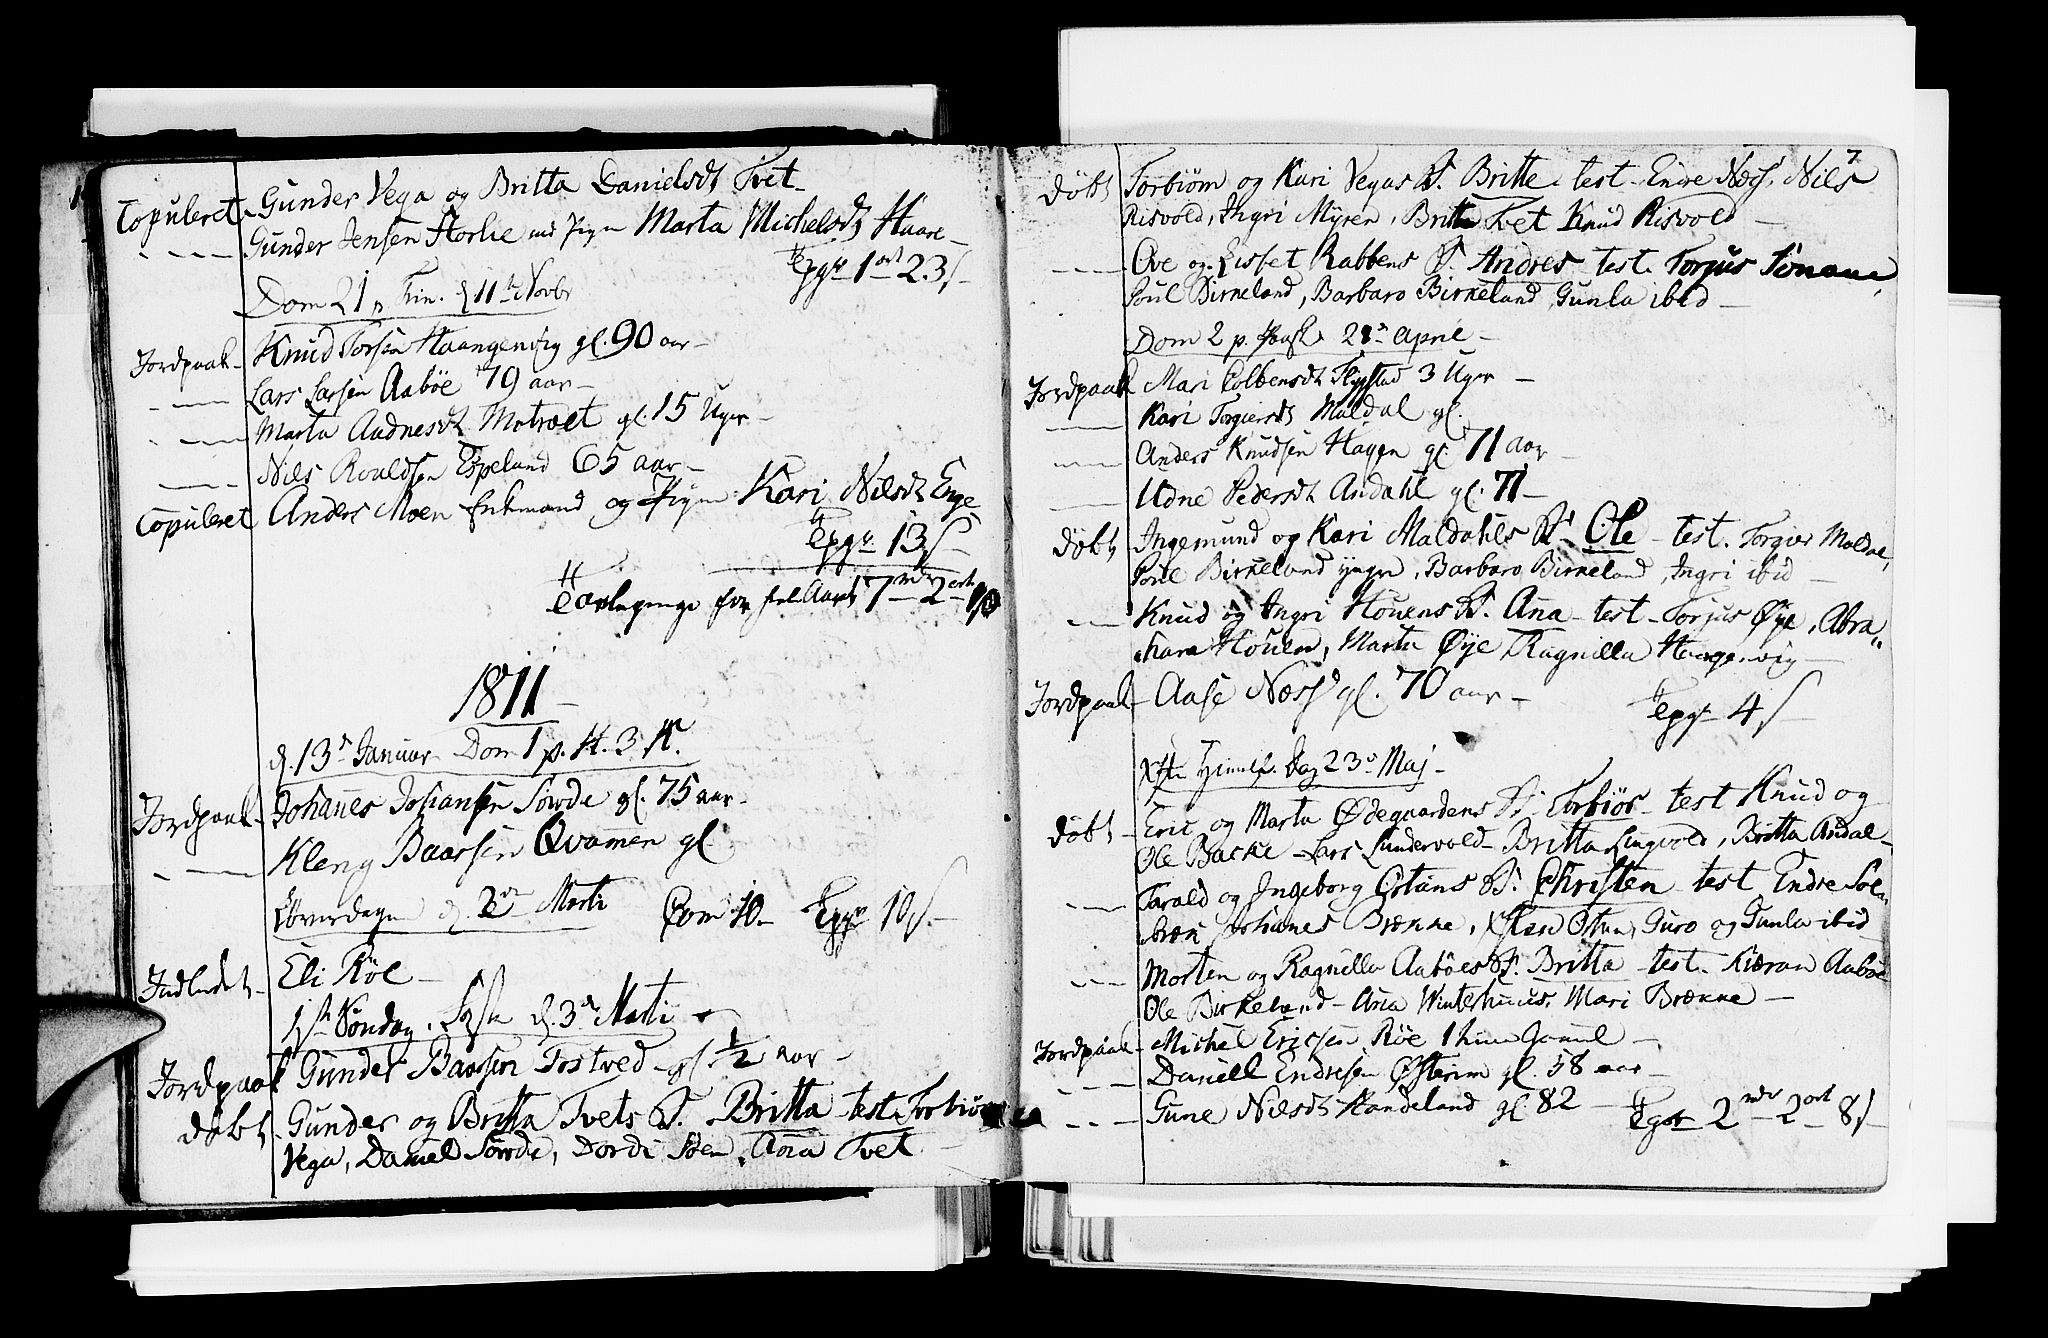 Copuleret Gunder Vega og Britta Danielsdt Tvet
Gunder Jensen Horlie Marta Michelsdt Haare
1 ort 2.3 s
Dom 21 p Trin. d 11te Novbr
Jordpaak Knud Torsen Haangenvig gl. 90 aar
Lars Larsen Aabøe 79 aar
Marta Aadnesdt Motvæt gl. 15 Uger
Nils Roaldsen Espeland 65 aar
Copuleret Anders Moen Enkmand og Pigen Kari Nilsdt Enge
13 s
for Aaret 7 rdr 2 ort
1811
d. 13de Januar Dom 1 p. H. 3 K.
Jordpaak Johanes Johansen Sørde gl. 75 aar
Kleng Baarsen Qvamen gl
Løverdagen d. 2den Marti Com 10 10 s
Indledet Eli Røe
1ste Søndag d. 3de Marti
Jordpaak Gunder Baarsen Tostved gl. 1/2 aar
døbt Gunder og Britta Tvets B. Britta test Torbiørn
Vega, Daniel Sørde, Dordi Søen, Ana Tvet
7
døbt Torbiørn og Kari Vegas B. Britte test Endre Næss, Nils
Risvold, Ingri Myren, Britta Tvet Knud Risvold
Ove og Lisset Rabbens B. Andres test. Torjus Tonane,
Poul Birkeland, Barbara Birkeland, Gunla ibid
Dom 2 p. Paask. 28de April
Jordpaak Mari Colbensdt Flystad 3 Uger
Kari Torgiersdt Maldal gl.
Anders Knudsen Hagen gl. 71 aar
Udne Pedersdt Andahl gl. 71
døbt Ingemund og Kari Maldahls B. Ole test. Torgier Maldal,
Poul Birkeland yngre, Barbara Birkeland, Ingri ibid
Knud og Ingri Houens B. Ana test Torjus Øye, Abra
ham Houen, Marta Øye, Ragnilla Haangenvig
Jordpaak Aase Næss gl. 70 aar
4 s
Xsti Himelf. Dag 23de Maj
døbt Eric og Marta Ødegaardens B. Torbiør test Knud og
Ole Backe Lars Lundervold Britta Lingvold, Britta Andal
Tarald og Ingeborg Østuns B. Christen test Endre Søen
Johanes Brække, Østun, Guro og Gunla ibid
Morten og Ragnilla Aabøes B. Britta test. Aabøe
Ole Birkeland Ana Winterhuus, Mari Brække
Jordpaak Michel Ericsen Røe 1 Time Gamel
Daniell Endresen Østreim gl. 58 aar
Gune Nilsdt Handeland gl. 82 2 rdr 2 ort 8 s